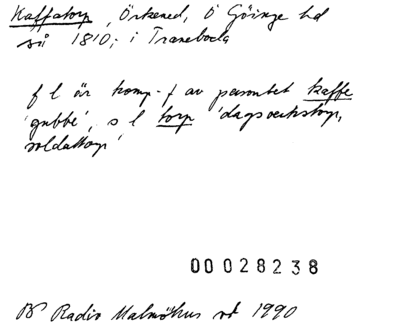 Kaffatorp, Örkened, Ö Göinge hd
så 1810; i Traneboda
f l är komp.f av personbet kaffe
'gubbe', s l torp 'dagsverkstorp,
soldattorp'
00028238
Radio Malmöhus vt 1990